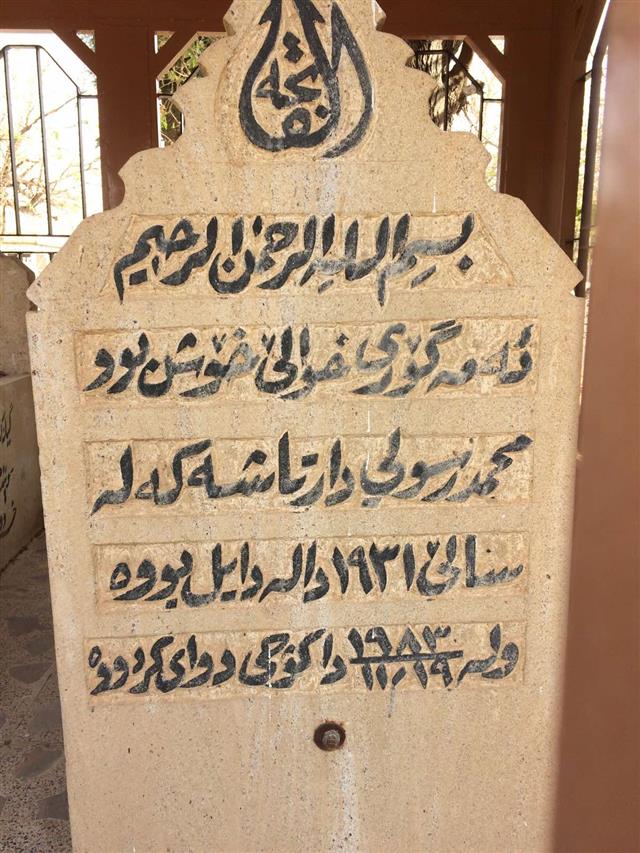 الفاتحة
بسم الله الرحمن الرحيم
ئەمە گۆڕی خوالێ خۆشبوو
محمد رسولي دارتاشە کە لە
سالێ ١٩٣١ دا لە دایل بووە
ولە ١٩٨٣/١١.١٩ دا کۆچی دوای کردووە